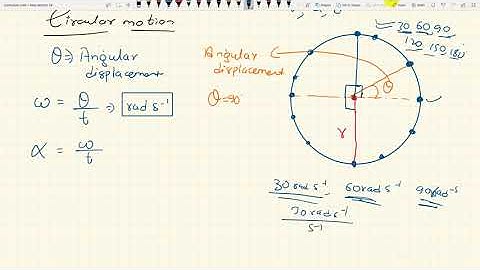 Circular motion
θ ⇒ Angular
displacement
ω = θ/t ⇒ rad s⁻¹
α = ω/t
Angular
displacement
θ=90
30 60 90
120 150 180
θ
r
30 rad s⁻¹ 60 rad s⁻¹ 90 rad s⁻¹
30 rad s⁻¹
s⁻¹